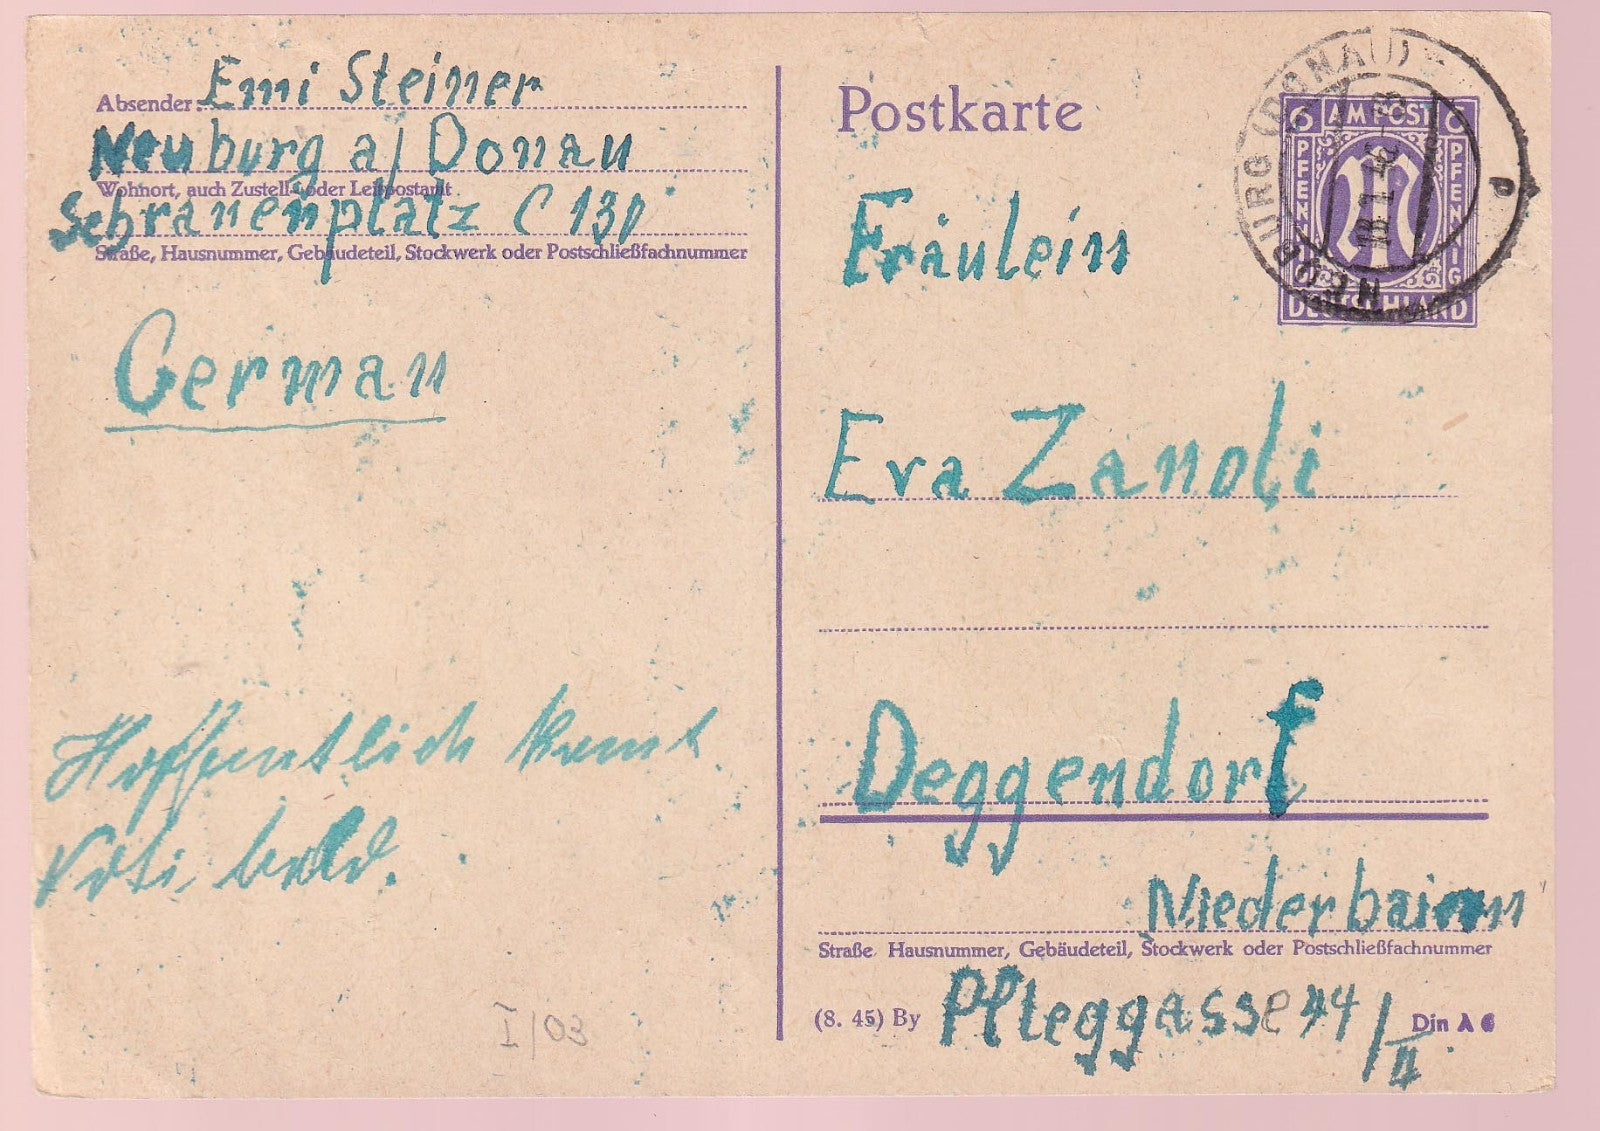 Absender: Emi Steiner
Neuburg a/Donau
Wohnort, auch Zustell- oder Leitpostamt
Schrannenplatz C 130
Straße, Hausnummer, Gebäudeteil, Stockwerk oder Postschließfachnummer
German
Hoffentlich kommt
Vati bald.
I/03
Postkarte
6 AM POST 6
PFENNIG
PFENNIG
M
DEUTSCHLAND
NEUBURG (DONAU)
18.1.46
Fräulein
Eva Zanoli
Deggendorf
Niederbaiern
Straße, Hausnummer, Gebäudeteil, Stockwerk oder Postschließfachnummer
(8. 45) By
Pfleggasse 44/II
Din A 6